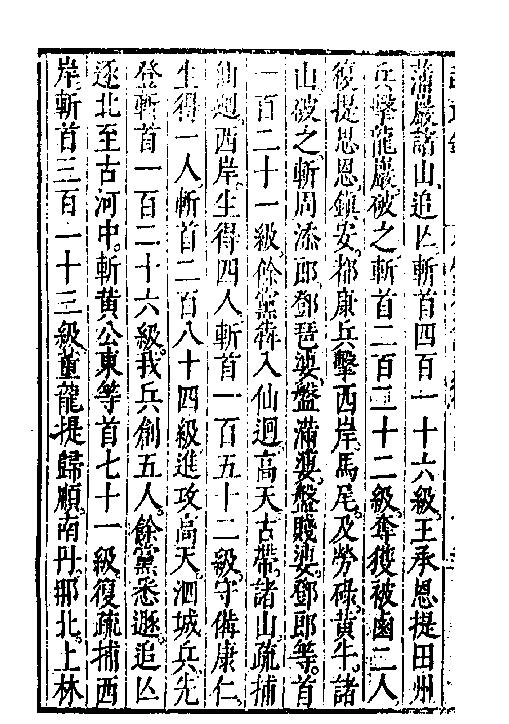 蒲巖諸山追亾斬首四百一十六級王承恩提田州
兵擊龍巖破之斬首二百三十二級奪獲被鹵二人
復提思恩鎮安都康兵擊西岸馬尾及勞碌黃牛諸
山破之斬周添郎鄧琶婆盤滿婆盤賤婆鄧郎等首
一百二十一級餘黨犇入仙迴高天古帶諸山疏捕
仙迴西岸生得四人斬首一百五十二級守備康仁
生得一人斬首二百八十四級進攻高天泗城兵先
登斬首一百二十六級我兵創五人餘黨悉遯追亾
逐北至古河中斬黃公東等首七十一級復疏捕西
岸斬首三百一十三級董龍提歸順南丹那北上林